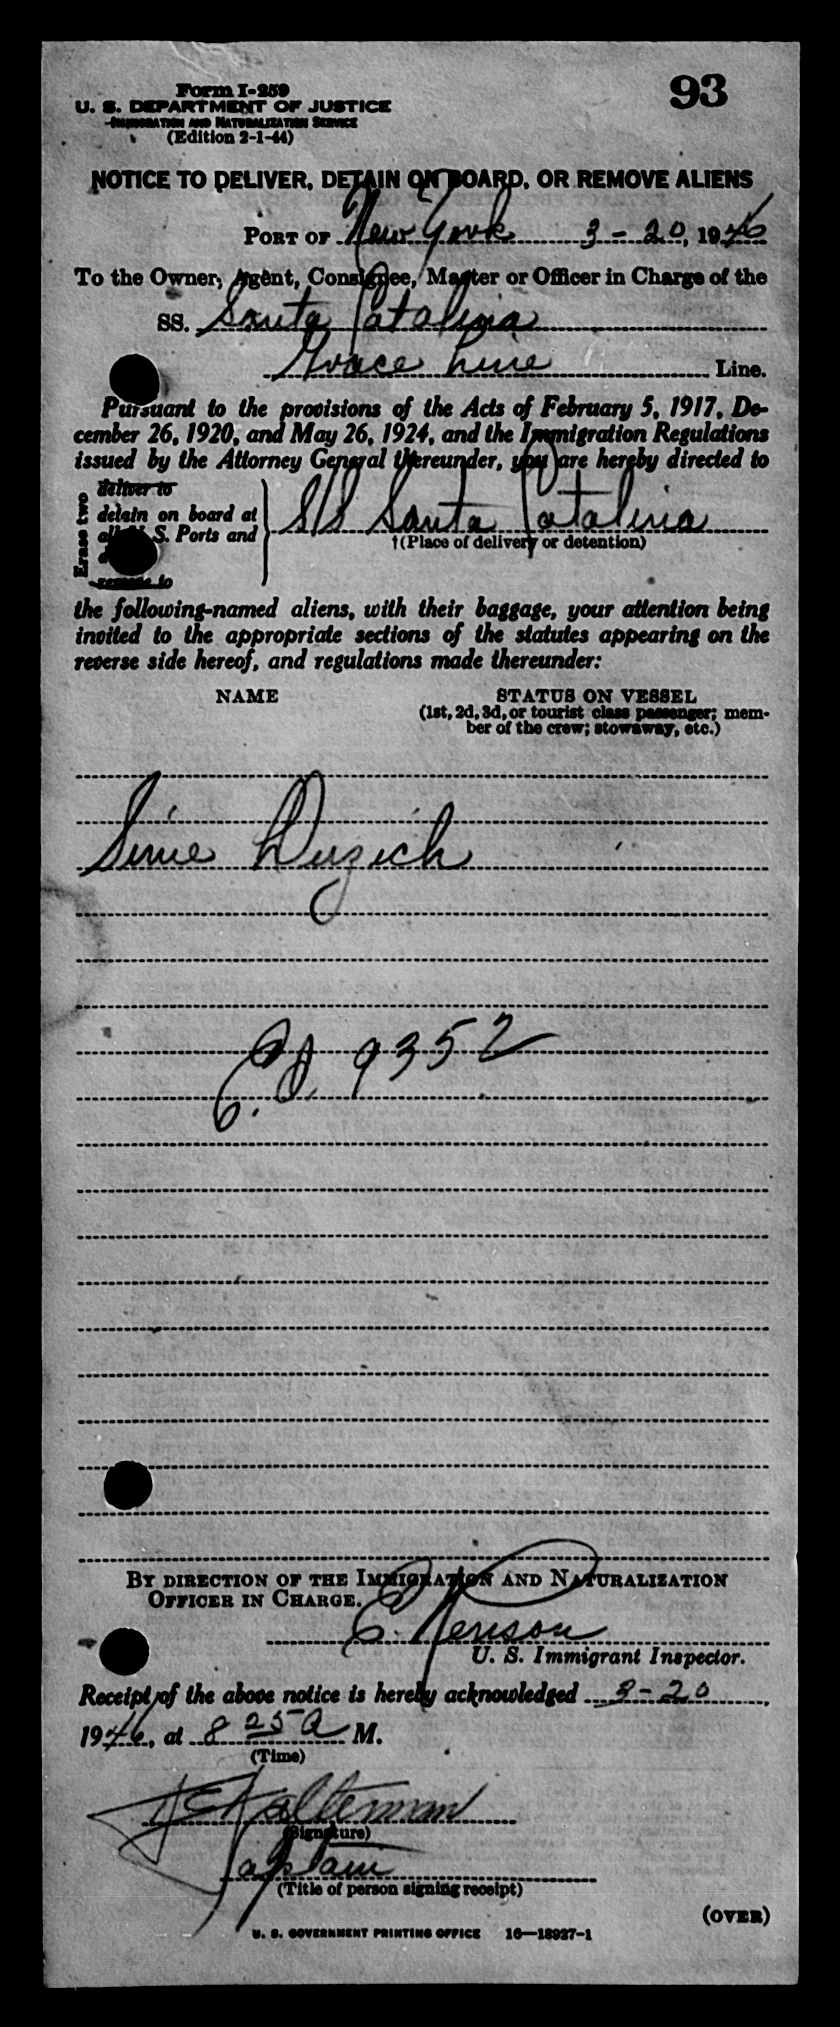 93
Form I-259
U. S. DEPARTMENT OF JUSTICE
IMMIGRATION AND NATURALIZATION SERVICE
(Edition 2-1-44)
NOTICE TO DELIVER, DETAIN ON BOARD, OR REMOVE ALIENS
PORT OF New York 3-20, 1946
To the Owner, Agent, Consignee, Master or Officer in Charge of the
SS. Santa Catalina
Grace Line Line.
Pursuant to the provisions of the Acts of February 5, 1917, De-
cember 26, 1920, and May 26, 1924, and the Immigration Regulations
issued by the Attorney General thereunder, you are hereby directed to
Erase two
deliver to
detain on board at
all U. S. Ports and
remove to
S/S Santa Catalina
†(Place of delivery or detention)
the following-named aliens, with their baggage, your attention being
invited to the appropriate sections of the statutes appearing on the
reverse side hereof, and regulations made thereunder:
NAME
STATUS ON VESSEL
(1st, 2d, 3d, or tourist class passenger; mem-
ber of the crew; stowaway, etc.)
Sime Duzich
9352
BY DIRECTION OF THE IMMIGRATION AND NATURALIZATION
OFFICER IN CHARGE.
E. Kenson
U. S. Immigrant Inspector.
Receipt of the above notice is hereby acknowledged 3-20,
1946, at 8 25 A M.
(Time)
Halterman
(Signature)
Captain
(Title of person signing receipt)
(OVER)
U. S. GOVERNMENT PRINTING OFFICE 16—18927-1